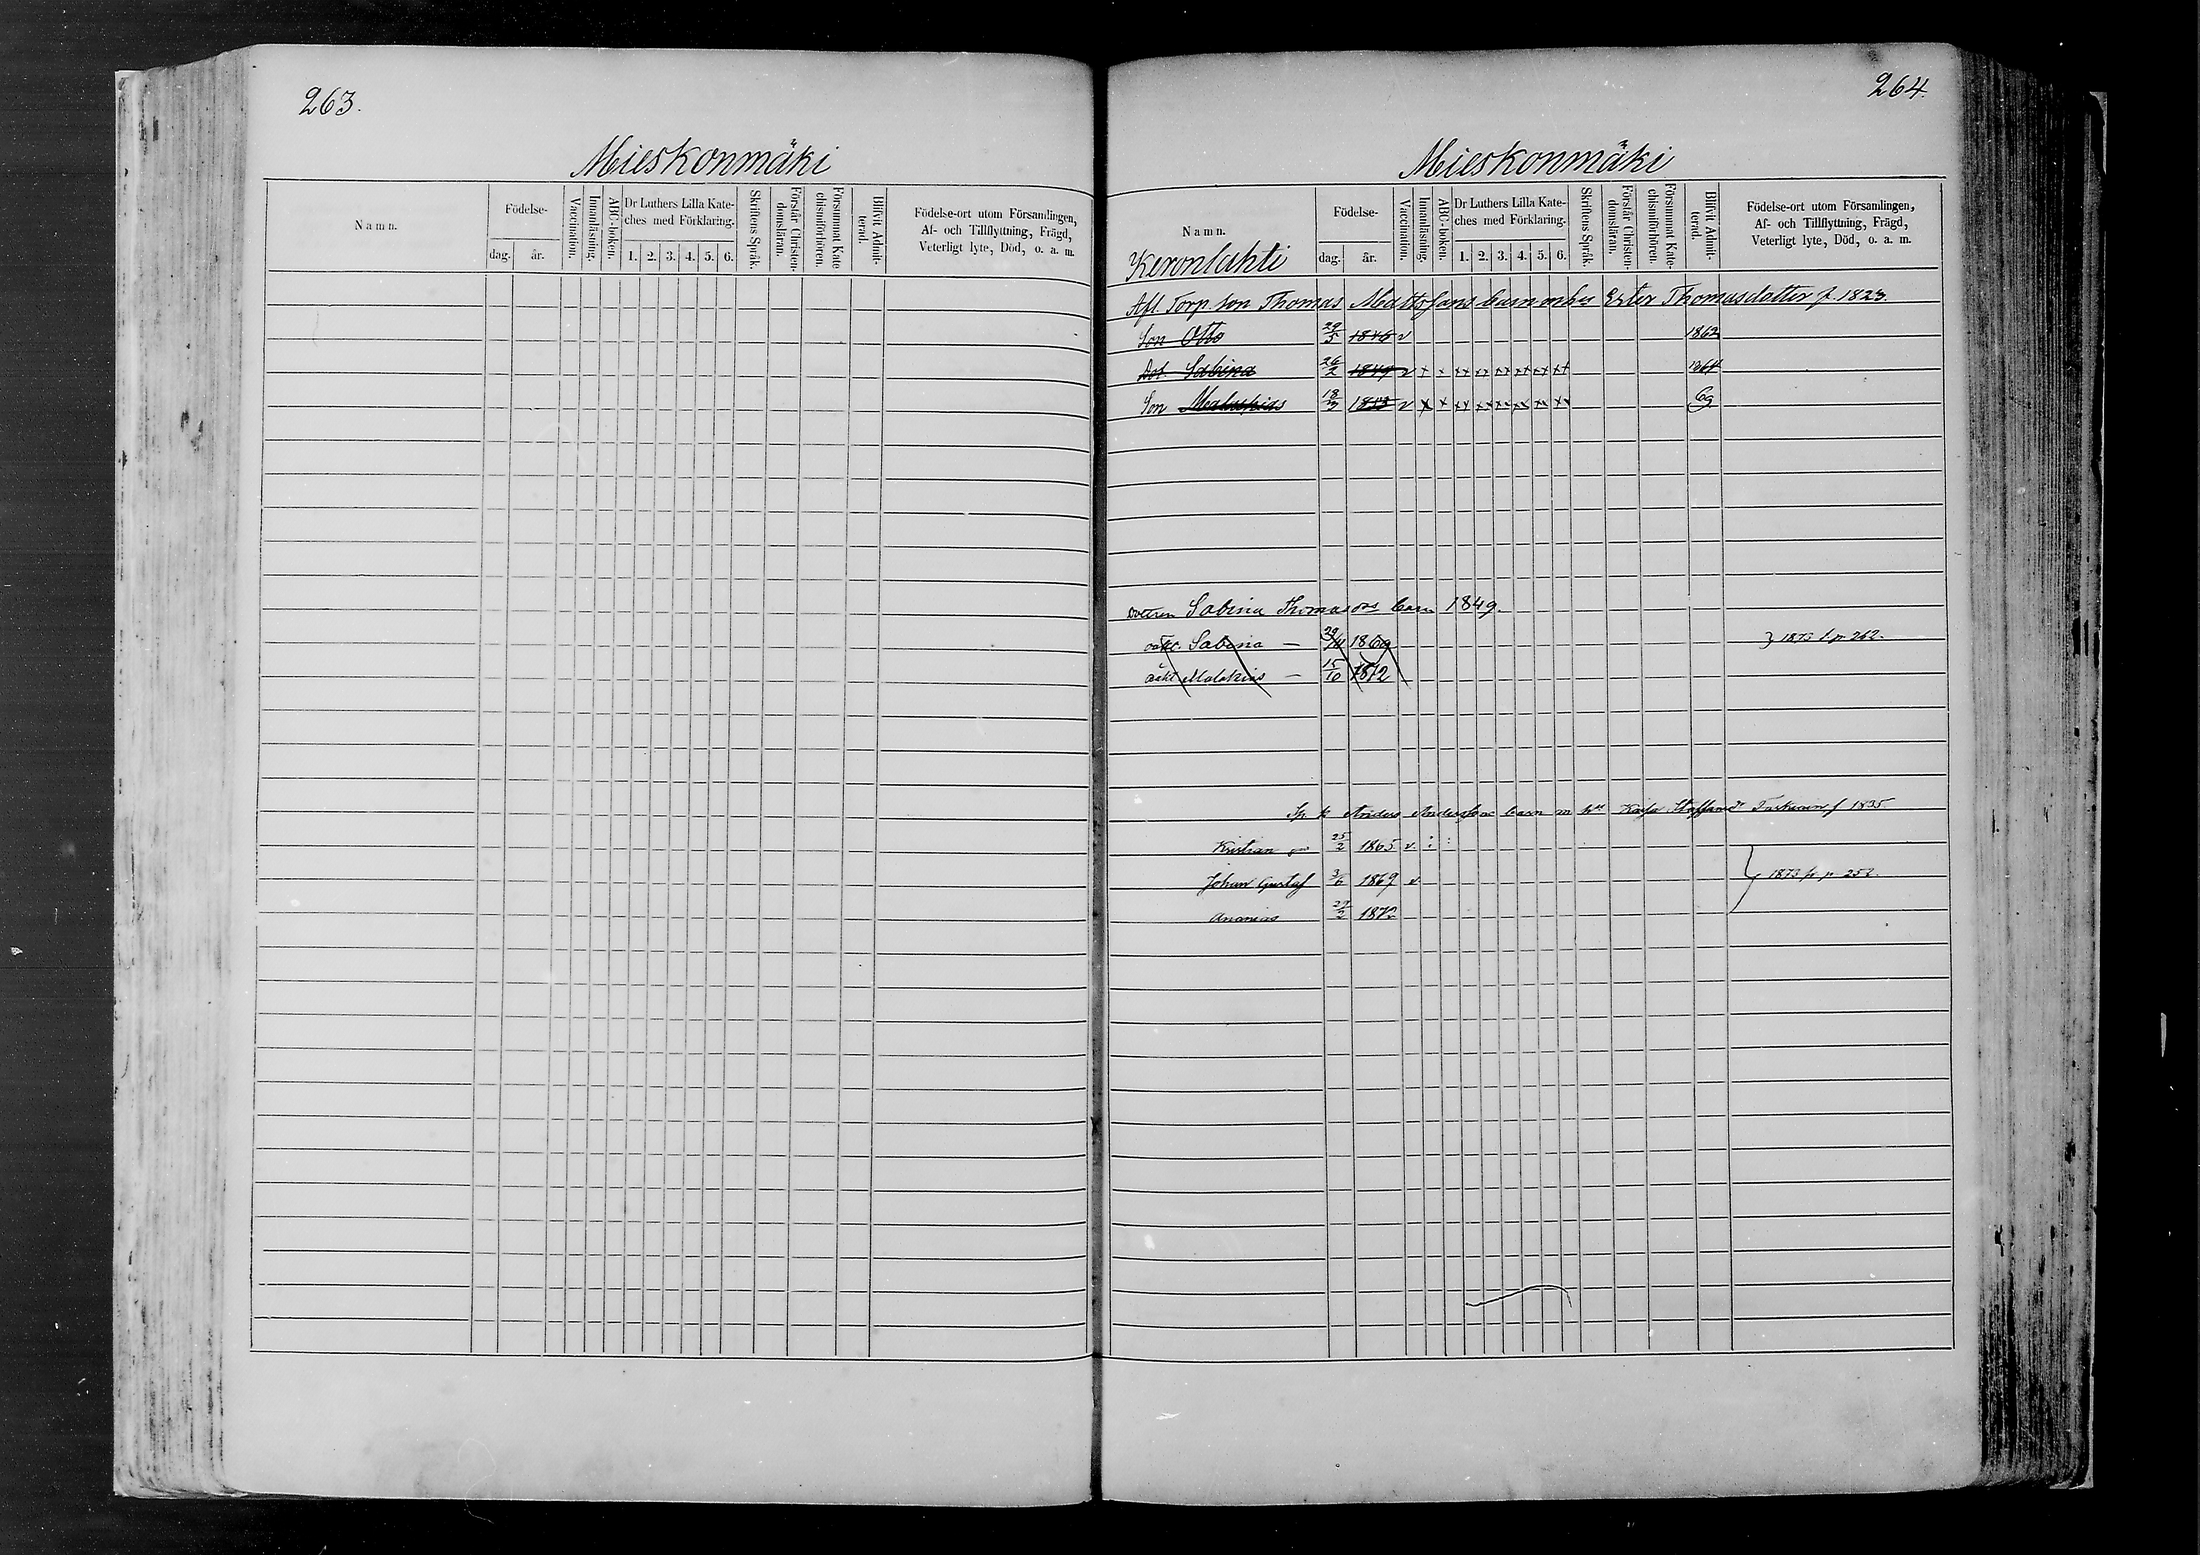 263.
Mieskonmäki
Namn.
Födelse-
dag.
år.
Vaccination.
Innanläsning.
ABC-boken.
Dr Luthers Lilla Kate-
ches med Förklaring.
1. 2. 3. 4. 5. 6.
Skriftens Språk.
Förstår Christen-
domsläran.
Försummat Kate-
chismiförhören.
Blifvit Admit-
terad.
Födelse-ort utom Församlingen,
Af- och Tillflyttning, Frägd,
Veterligt lyte, Död, o. a. m.
264.
Mieskonmäki
Namn.
Keronlahti
Födelse-
dag.
år.
Vaccination.
Innanläsning.
ABC-boken.
Dr Luthers Lilla Kate-
ches med Förklaring.
1. 2. 3. 4. 5. 6.
Skriftens Språk.
Förstår Christen-
domsläran.
Försummat Kate-
chismiförhören.
Blifvit Admit-
terad.
Födelse-ort utom Församlingen,
Af- och Tillflyttning, Frägd,
Veterligt lyte, Död, o. a. m.
Afl. Torp. son Thomas Mattssons barn m hu Ester Thomasdotter f. 1823.
Son Otto 29/5 1846 v 1862
Dot. Sabina 26/2 v x x xx xx xx xx xx xx 1864
Son Malakias 18/3 v x x xx xx xx xx xx xx 69
Dottren Sabina Thomas barn 1849.
oäkt. Sabina — 1869 } 1873 f. p 262.
oäkt Malakias — 15/10 1872
Anders Anderssons barn m Kaisa Staffansdr f 1835
Kristian 25/2 1865 v
Johan Gustaf 3/6 1869 v } 1873 fr p 252.
Ananias 29/2 1872